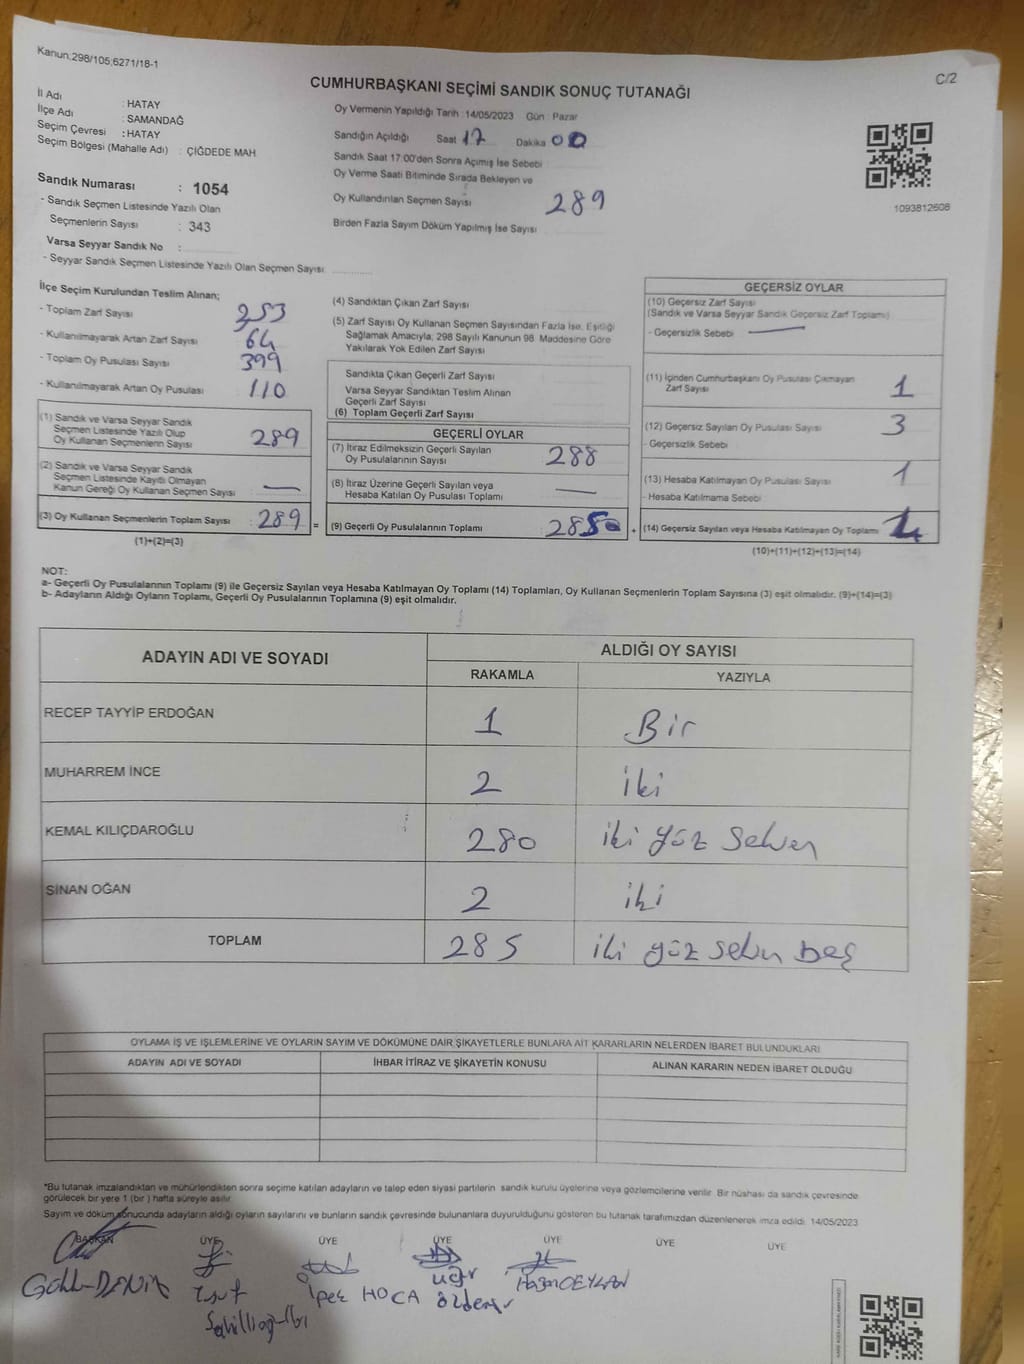 Kanun;298/105;6271/18-1
C/2
CUMHURBAŞKANI SEÇİMİ SANDIK SONUÇ TUTANAĞI
İl Adı : HATAY
İlçe Adı : SAMANDAĞ
Seçim Çevresi : HATAY
Seçim Bölgesi (Mahalle Adı) : ÇİĞDEDE MAH
Sandık Numarası : 1054
- Sandık Seçmen Listesinde Yazılı Olan
Seçmenlerin Sayısı : 343
Varsa Seyyar Sandık No :
- Seyyar Sandık Seçmen Listesinde Yazılı Olan Seçmen Sayısı
Oy Vermenin Yapıldığı Tarih :14/05/2023 Gün : Pazar
Sandığın Açıldığı Saat 17 Dakika 00
Sandık Saat 17:00'den Sonra Açımış İse Sebebi
Oy Verme Saati Bitiminde Sırada Bekleyen ve
Oy Kullandırılan Seçmen Sayısı 289
Birden Fazla Sayım Döküm Yapılmış İse Sayısı
1093812608
İlçe Seçim Kurulundan Teslim Alınan;
- Toplam Zarf Sayısı 253
- Kullanılmayarak Artan Zarf Sayısı 64
- Toplam Oy Pusulası Sayısı 399
- Kullanılmayarak Artan Oy Pusulası 110
(1) Sandık ve Varsa Seyyar Sandık
Seçmen Listesinde Yazılı Olup
Oy Kullanan Seçmenlerin Sayısı 289
(2) Sandık ve Varsa Seyyar Sandık
Seçmen Listesinde Kayıtlı Olmayan
Kanun Gereği Oy Kullanan Seçmen Sayısı —
(3) Oy Kullanan Seçmenlerin Toplam Sayısı : 289 =
(1)+(2)=(3)
(4) Sandıktan Çıkan Zarf Sayısı
(5) Zarf Sayısı Oy Kullanan Seçmen Sayısından Fazla İse, Eşitliği
Sağlamak Amacıyla, 298 Sayılı Kanunun 98. Maddesine Göre
Yakılarak Yok Edilen Zarf Sayısı
Sandıkta Çıkan Geçerli Zarf Sayısı
Varsa Seyyar Sandıktan Teslim Alınan
Geçerli Zarf Sayısı
(6) Toplam Geçerli Zarf Sayısı
GEÇERLİ OYLAR
(7) İtiraz Edilmeksizin Geçerli Sayılan
Oy Pusulalarının Sayısı 288
(8) İtiraz Üzerine Geçerli Sayılan veya
Hesaba Katılan Oy Pusulası Toplamı —
(9) Geçerli Oy Pusulalarının Toplamı +
GEÇERSİZ OYLAR
(10) Geçersiz Zarf Sayısı
(Sandık ve Varsa Seyyar Sandık Geçersiz Zarf Toplamı)
- Geçersizlik Sebebi —
(11) İçinden Cumhurbaşkanı Oy Pusulası Çıkmayan
Zarf Sayısı 1
(12) Geçersiz Sayılan Oy Pusulası Sayısı 3
- Geçersizlik Sebebi
(13) Hesaba Katılmayan Oy Pusulası Sayısı 1
- Hesaba Katılmama Sebebi
(14) Geçersiz Sayılan veya Hesaba Katılmayan Oy Toplamı
(10)+(11)+(12)+(13)=(14)
NOT:
a- Geçerli Oy Pusulalarının Toplamı (9) ile Geçersiz Sayılan veya Hesaba Katılmayan Oy Toplamı (14) Toplamları, Oy Kullanan Seçmenlerin Toplam Sayısına (3) eşit olmalıdır. (9)+(14)=(3)
b- Adayların Aldığı Oyların Toplamı, Geçerli Oy Pusulalarının Toplamına (9) eşit olmalıdır.
ADAYIN ADI VE SOYADI
ALDIĞI OY SAYISI
RAKAMLA YAZIYLA
RECEP TAYYİP ERDOĞAN 1 Bir
MUHARREM İNCE 2 iki
KEMAL KILIÇDAROĞLU 280 iki yüz seksen
SİNAN OĞAN 2 iki
TOPLAM 285 iki yüz seksen beş
OYLAMA İŞ VE İŞLEMLERİNE VE OYLARIN SAYIM VE DÖKÜMÜNE DAİR ŞİKAYETLERLE BUNLARA AİT KARARLARIN NELERDEN İBARET BULUNDUKLARI
ADAYIN ADI VE SOYADI İHBAR İTİRAZ VE ŞİKAYETİN KONUSU ALINAN KARARIN NEDEN İBARET OLDUĞU
*Bu tutanak imzalandıktan ve mühürlendikten sonra seçime katılan adayların ve talep eden siyasi partilerin sandık kurulu üyelerine veya gözlemcilerine verilir. Bir nüshası da sandık çevresinde
görülecek bir yere 1 (bir ) hafta süreyle asılır.
Sayım ve döküm sonucunda adayların aldığı oyların sayılarını ve bunların sandık çevresinde bulunanlara duyurulduğunu gösteren bu tutanak tarafımızdan düzenlenerek imza edildi. 14/05/2023
BAŞKAN ÜYE ÜYE ÜYE ÜYE ÜYE ÜYE
DENİZ
İpek HOCA
Uğur